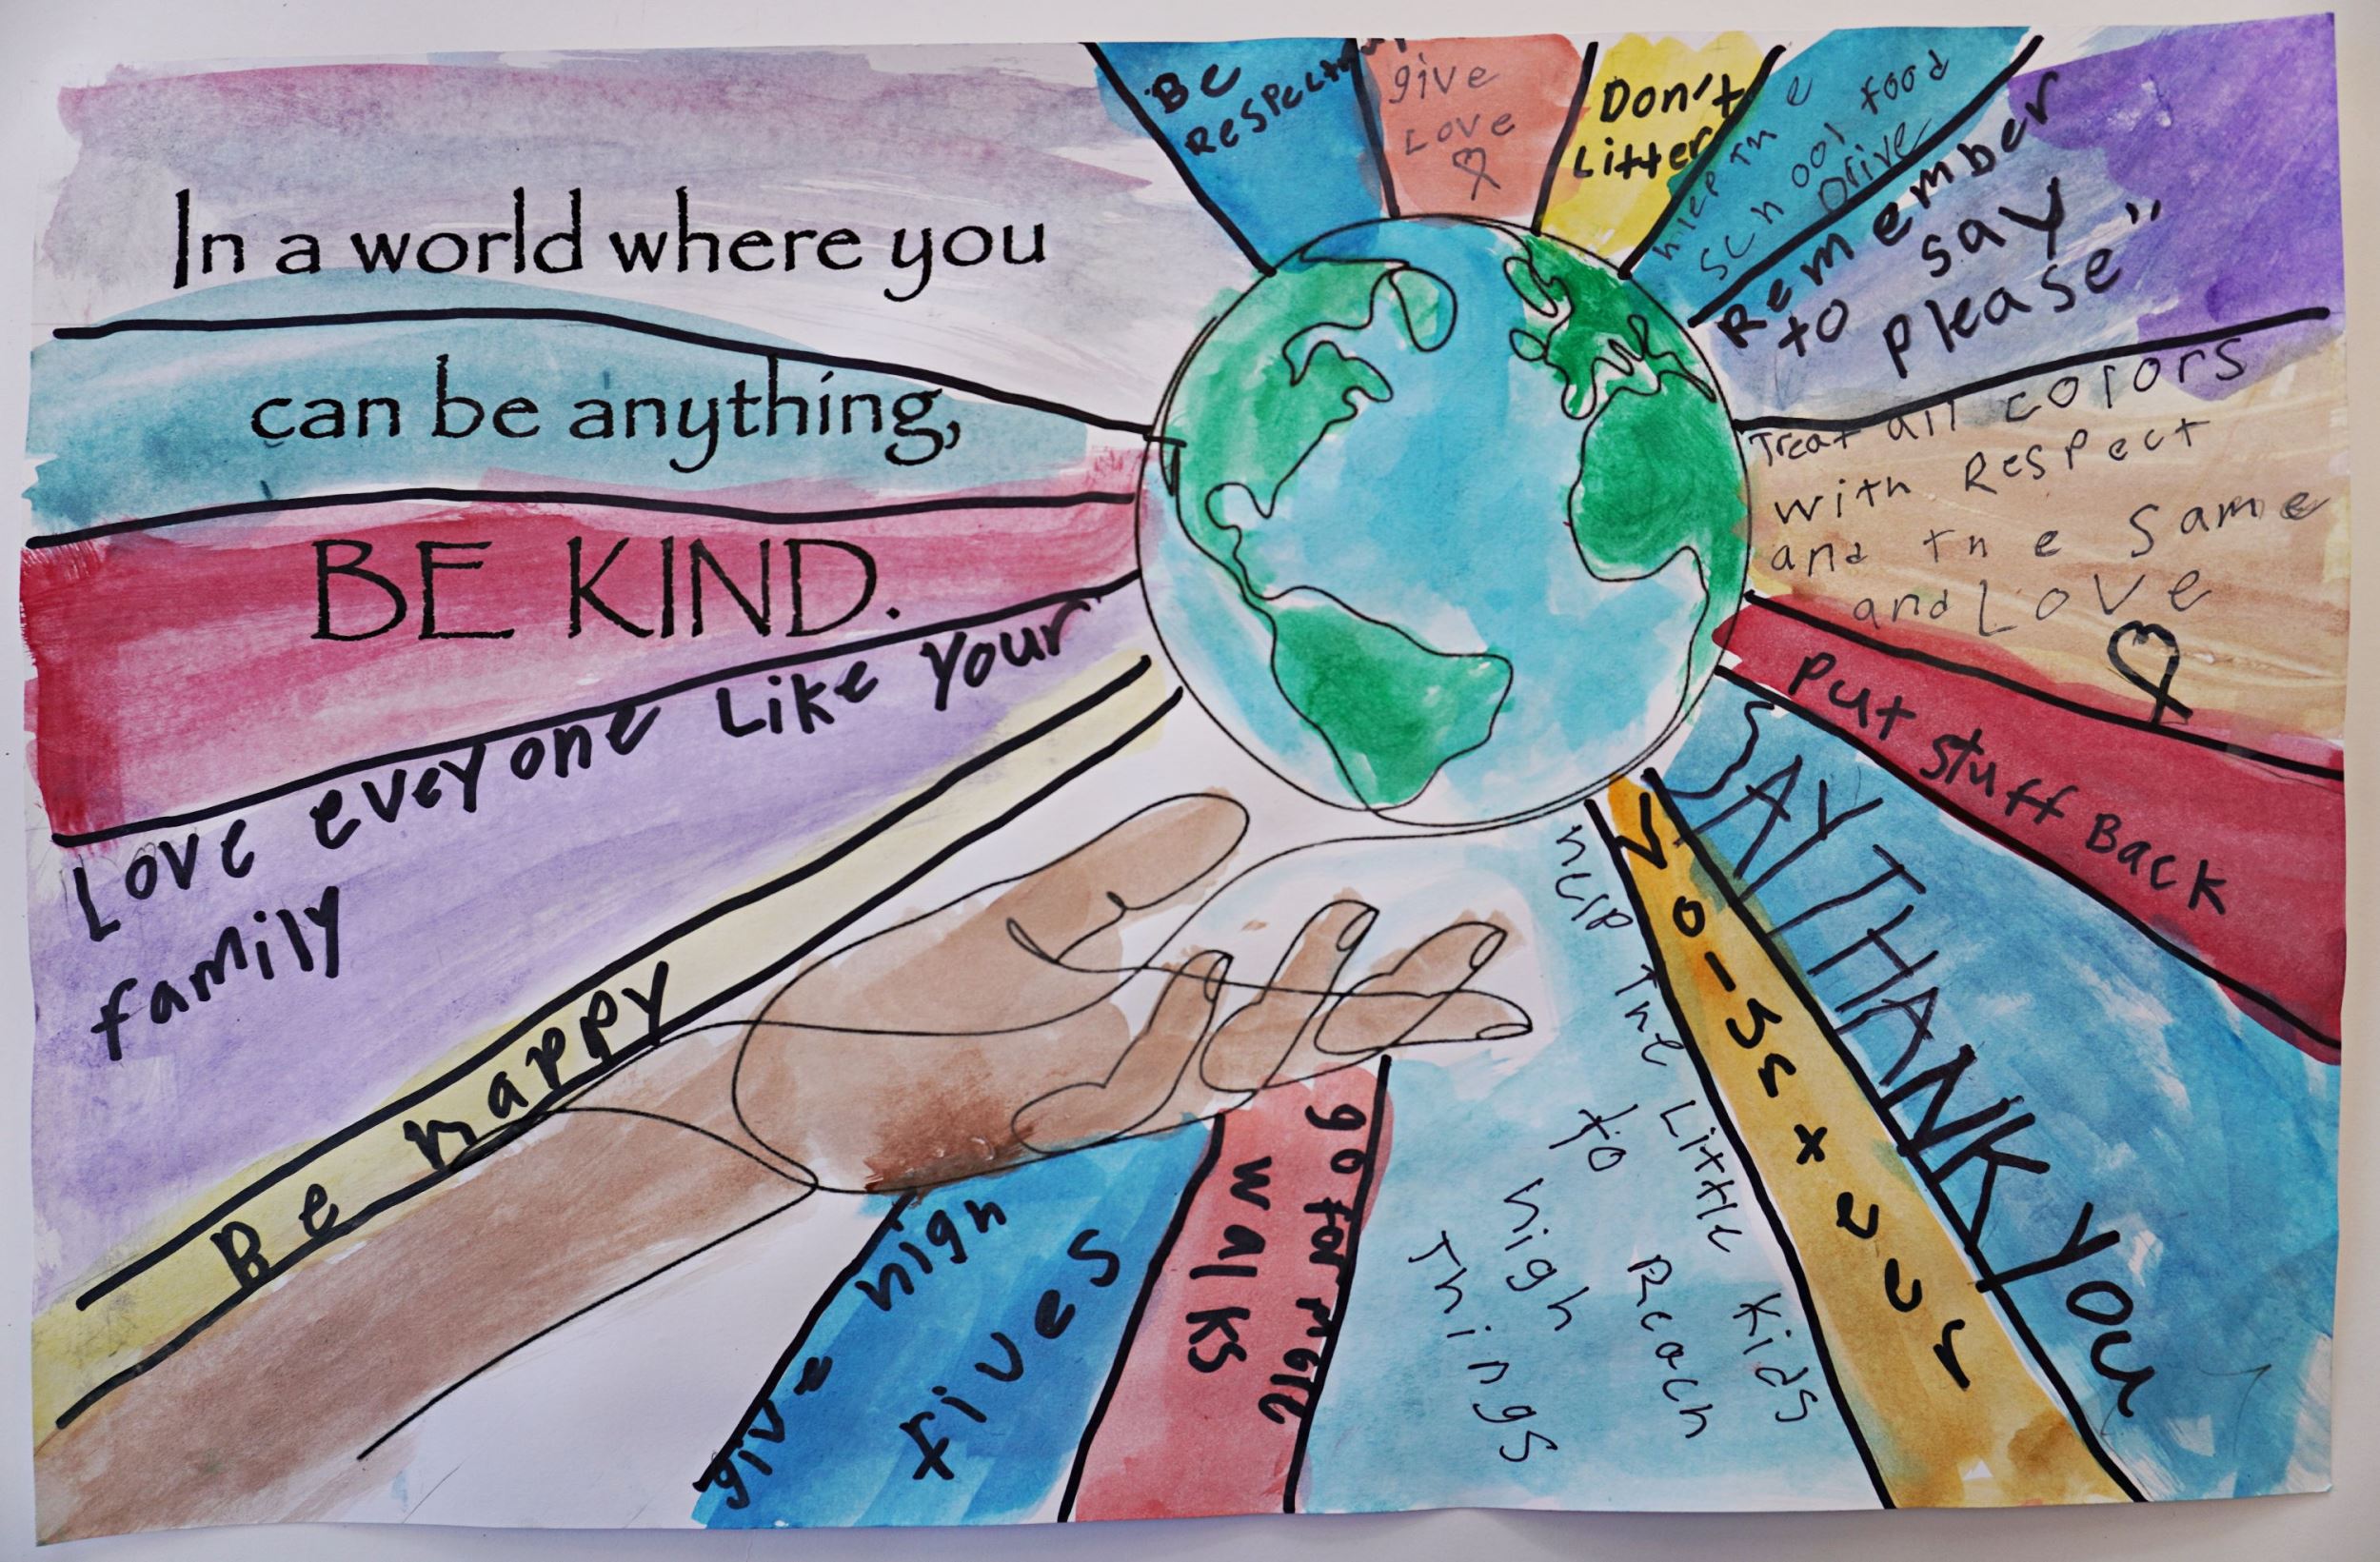 In a world where you
can be anything,
BE KIND.
Love eveyone Like your
family
Be happy
Be
Respectful
give
Love
Don't
Litter
hlep the
school food
Drive
Remember
to say
please"
Treat all colors
with Respect
and the same
and Love
Put Stuff Back
SAY THANK YOU
Volunteer
help the Little Kids
to Reach
high
Things
go for more
walks
give high
fives